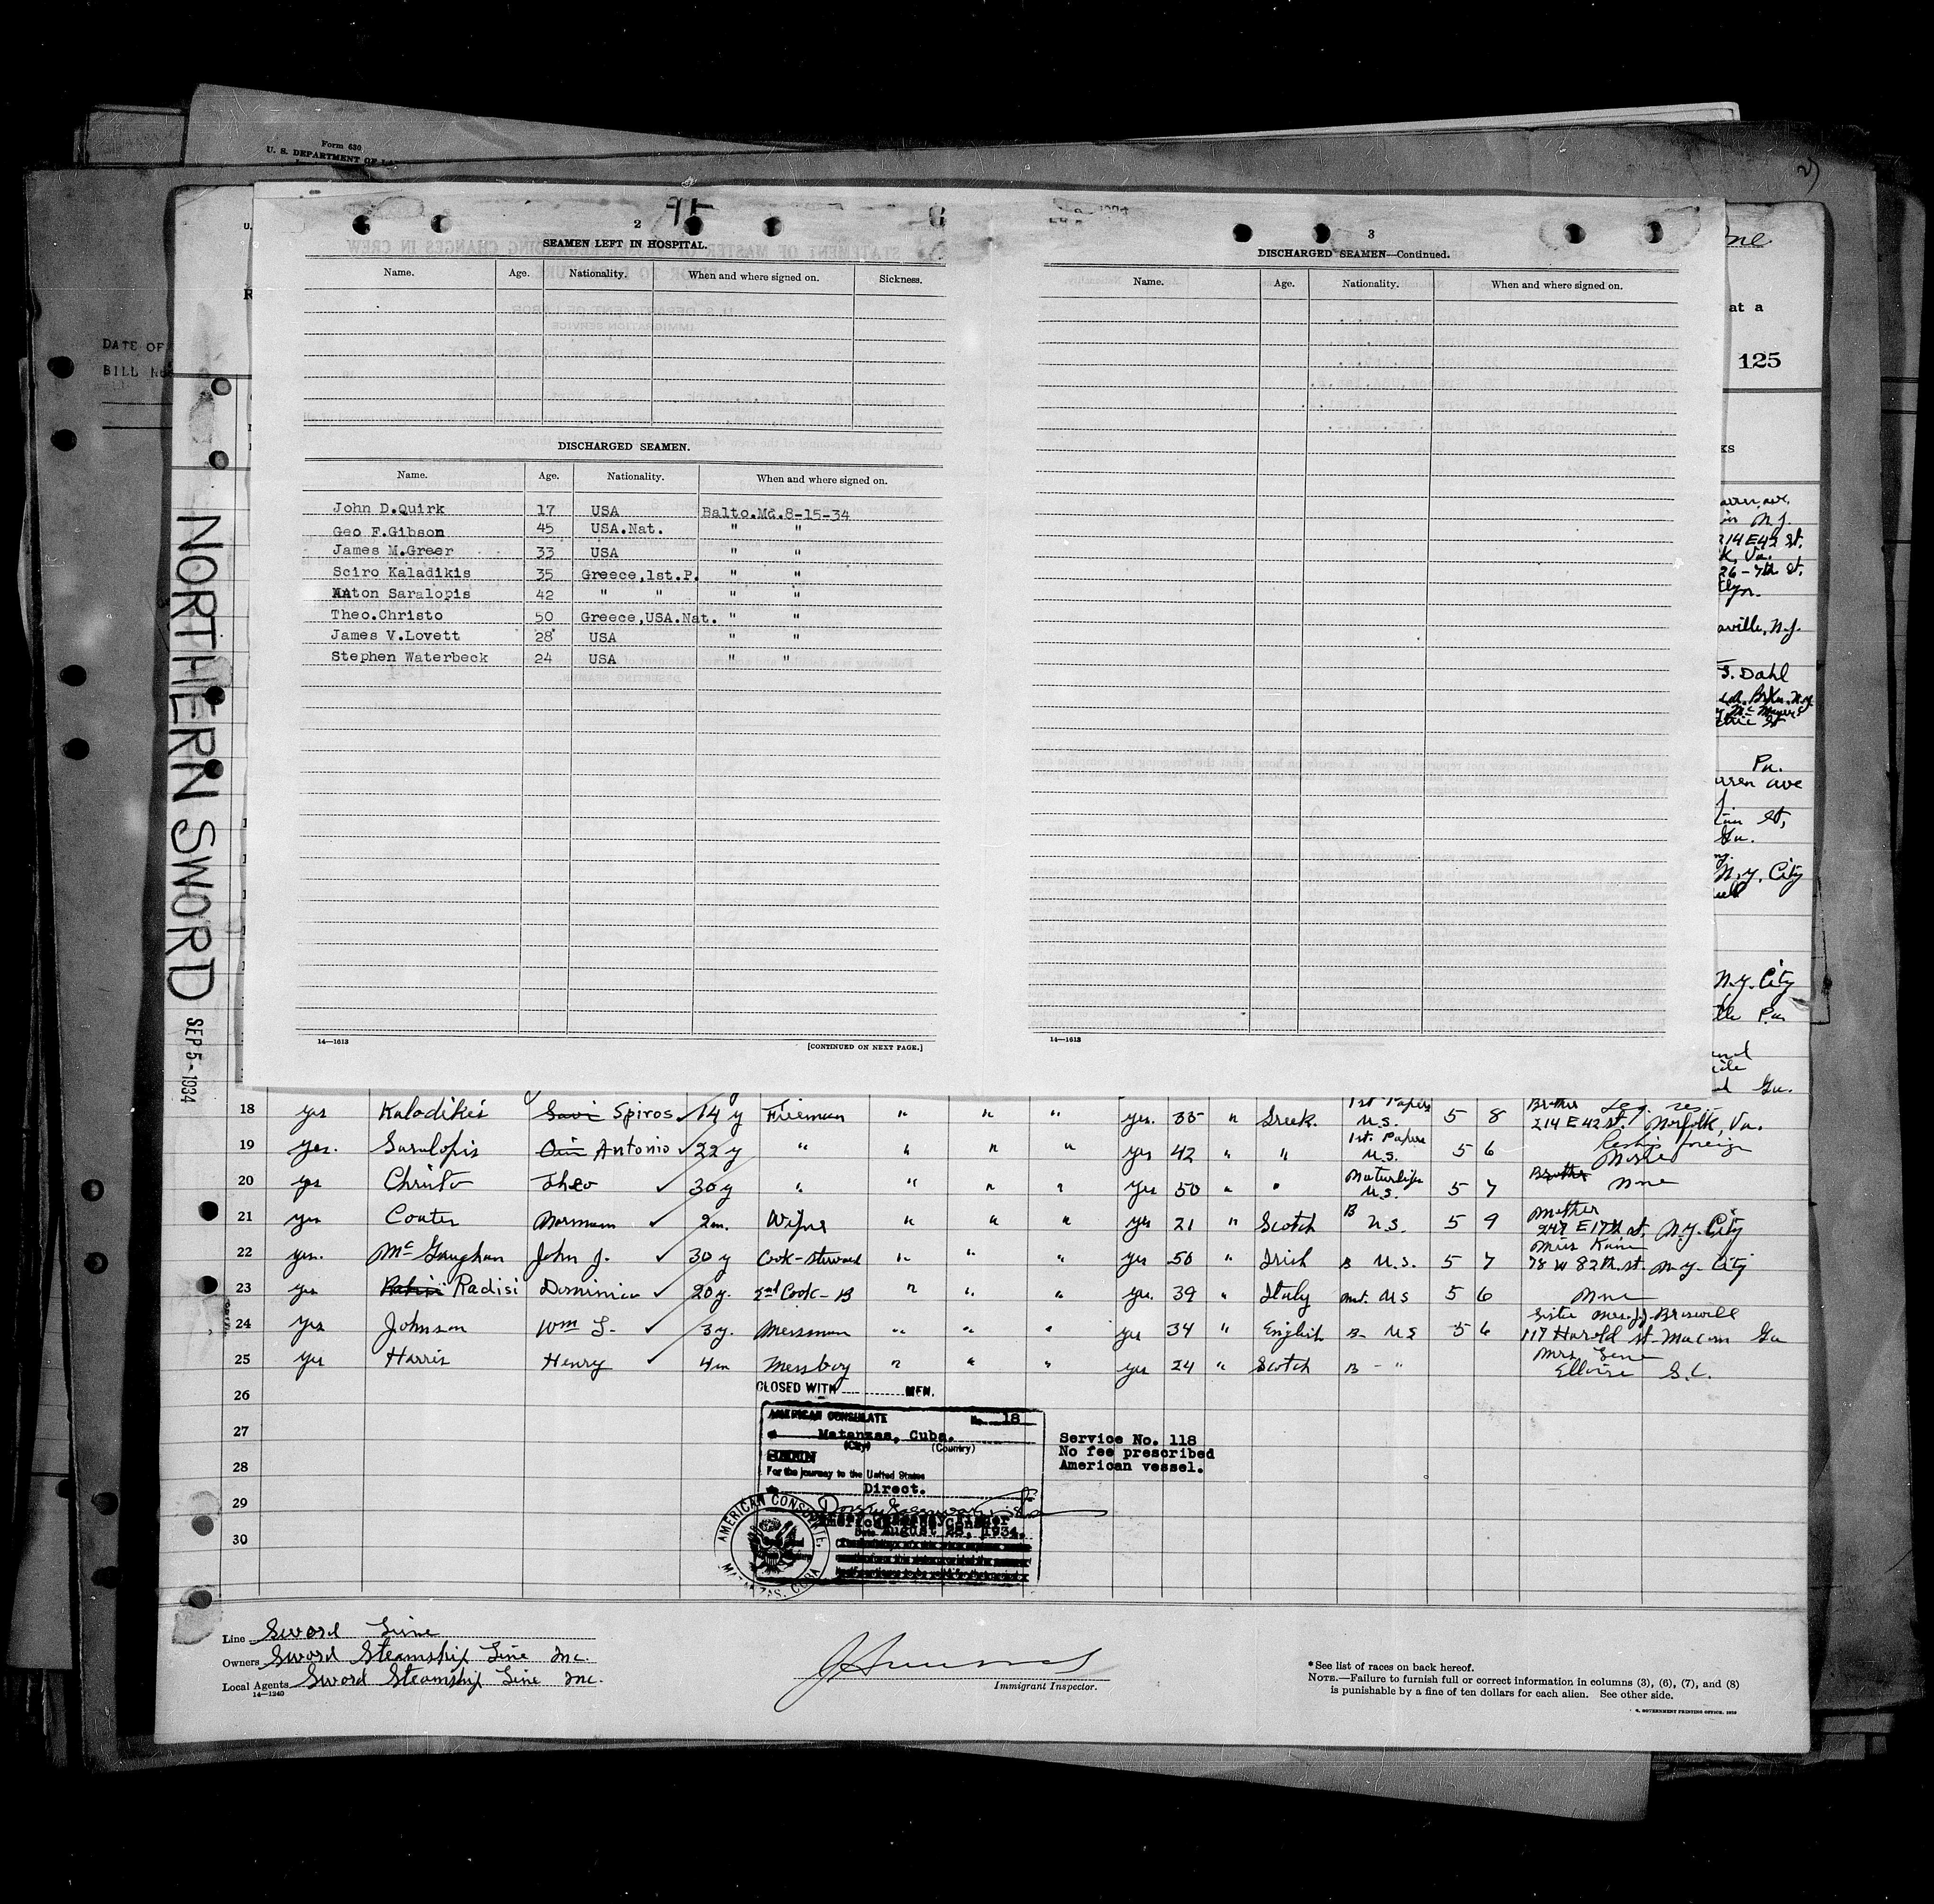 Form 630
U. S. DEPARTMENT OF LA
DATE OF
BILL No
at a
125
NORTHERN SWORD
SEP 5 - 1934
2
SEAMEN LEFT IN HOSPITAL.
Name. Age. Nationality. When and where signed on. Sickness.
DISCHARGED SEAMEN.
Name. Age. Nationality. When and where signed on.
John D.Quirk 17 USA Balto.Md.8-15-34
Geo F.Gibson 45 USA.Nat. " "
James M.Greer 33 USA " "
Sciro Kaladikis 35 Greece,1st.P. " "
Anton Saralopis 42 " " " "
Theo.Christo 50 Greece,USA.Nat. " "
James V.Lovett 28 USA " "
Stephen Waterbeck 24 USA " "
14—1613
[CONTINUED ON NEXT PAGE.]
3
DISCHARGED SEAMEN—Continued.
Name. Age. Nationality. When and where signed on.
14—1613
N.J.
214 E 42 St.
26 - 7th St.
aville, N.J.
S. Dahl
Pa.
ave
St,
Ga.
N.Y. City
N.Y. City
Ga.
18 yes Kaladikis Spiros 14 y Fireman " " " yes. 35 " Greek. 1st Papers U.S. 5 8 Brother 214 E 42 st. Norfolk, Va.
19 yes. Saralopis Antonio 22 y " " " " yes 42 " " 1st. Papers U.S. 5 6 None
20 yes Christo Theo 30 y " " " " yes 50 " " U.S. 5 7 Brother None
21 yes Couter Norman 2m. Wiper " " " yes 21 " Scotch B U.S. 5 9 Mother 247 E 17th st, N.Y. City
22 yes. McGaughan John J. 30 y Cook-steward " " " yes 50 " Irish B U.S. 5 7 78 W 82th. st. N.Y. City
23 yes Radisi Dominico 20 y. 2nd Cook - B " " " yes. 39 " Italy nat. US 5 6 None
24 yes Johnson Wm L. 3 y. Messman " " " yes 34 " English B - US 5 6 Sister Mrs. J.J. Braswell 117 Harold st - Macon Ga
25 yes Harris Henry 4m Messboy " " " yes 24 " Scotch B - " Mrs. Elloise S.C.
26
27
28
29
30
CLOSED WITH MEN.
AMERICAN CONSULATE No. 18
Matanzas, Cuba.
(City) (Country)
For the journey to the United States
Direct.
Date August 28, 1934.
AMERICAN CONSULATE, MATANZAS, CUBA
Service No. 118
No fee prescribed
American vessel.
Line Sword Line
Owners Sword Steamship Line Inc.
Local Agents Sword Steamship Line Inc.
14—1240
Immigrant Inspector.
*See list of races on back hereof.
NOTE.—Failure to furnish full or correct information in columns (3), (6), (7), and (8)
is punishable by a fine of ten dollars for each alien. See other side.